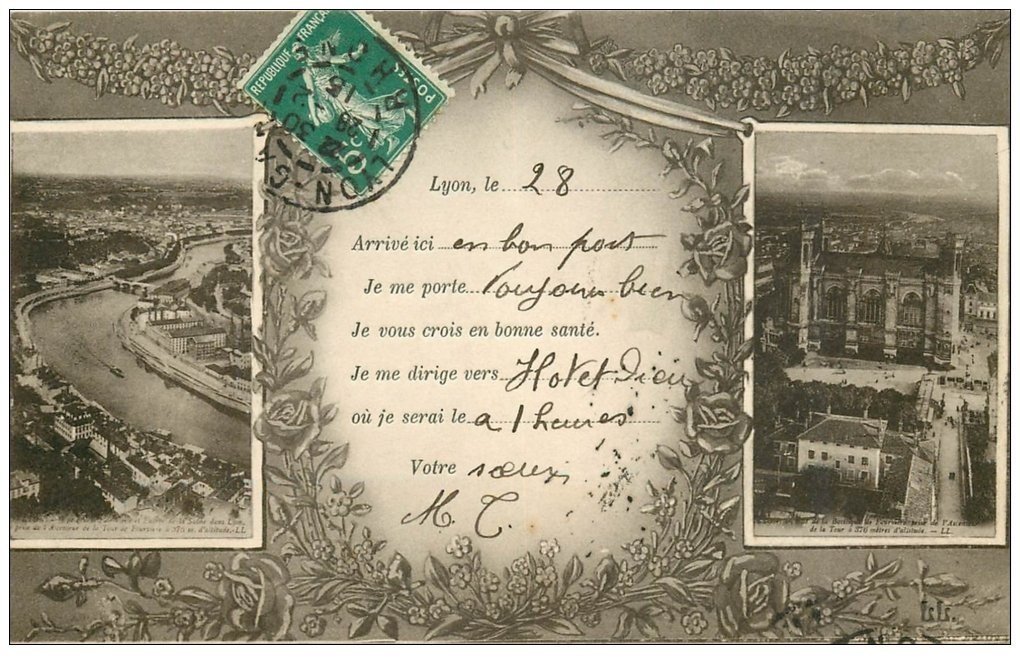 REPUBLIQUE FRANÇAISE
POSTES
LYON
Lyon, le 28
Arrivé ici en bon port
Je me porte Toujours bien
Je vous crois en bonne santé.
Je me dirige vers Hotel Dieu
où je serai le a 1 heures
Votre sœur
M. T.
de la Saône dans Lyon
prise de l'Ascenseur de la Tour de Fourvière à 376 m. d'altitude. - LL
de la Basilique de Fourvière, prise de l'Ascenseur
de la Tour à 376 mètres d'altitude. - LL.
LL.